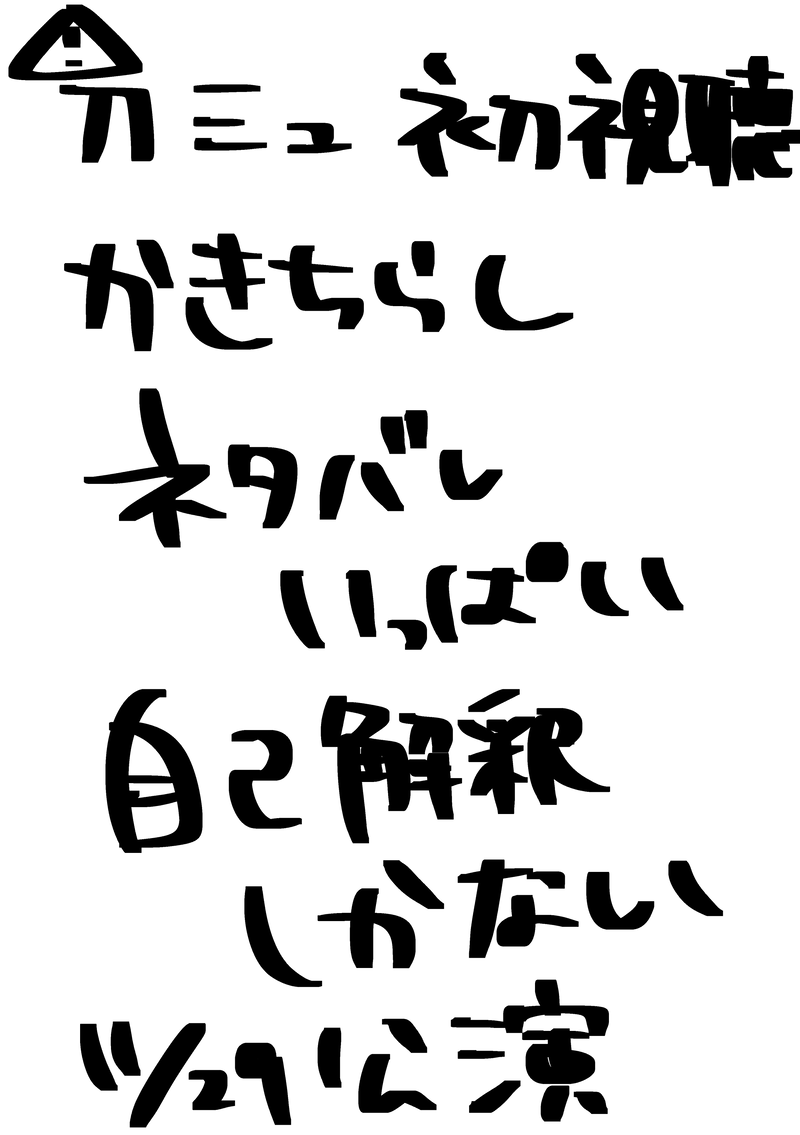 ⚠
刀ミュ 初視聴
かきちらし
ネタバレ
いっぱい
自己解釈
しかない
11/29 公演